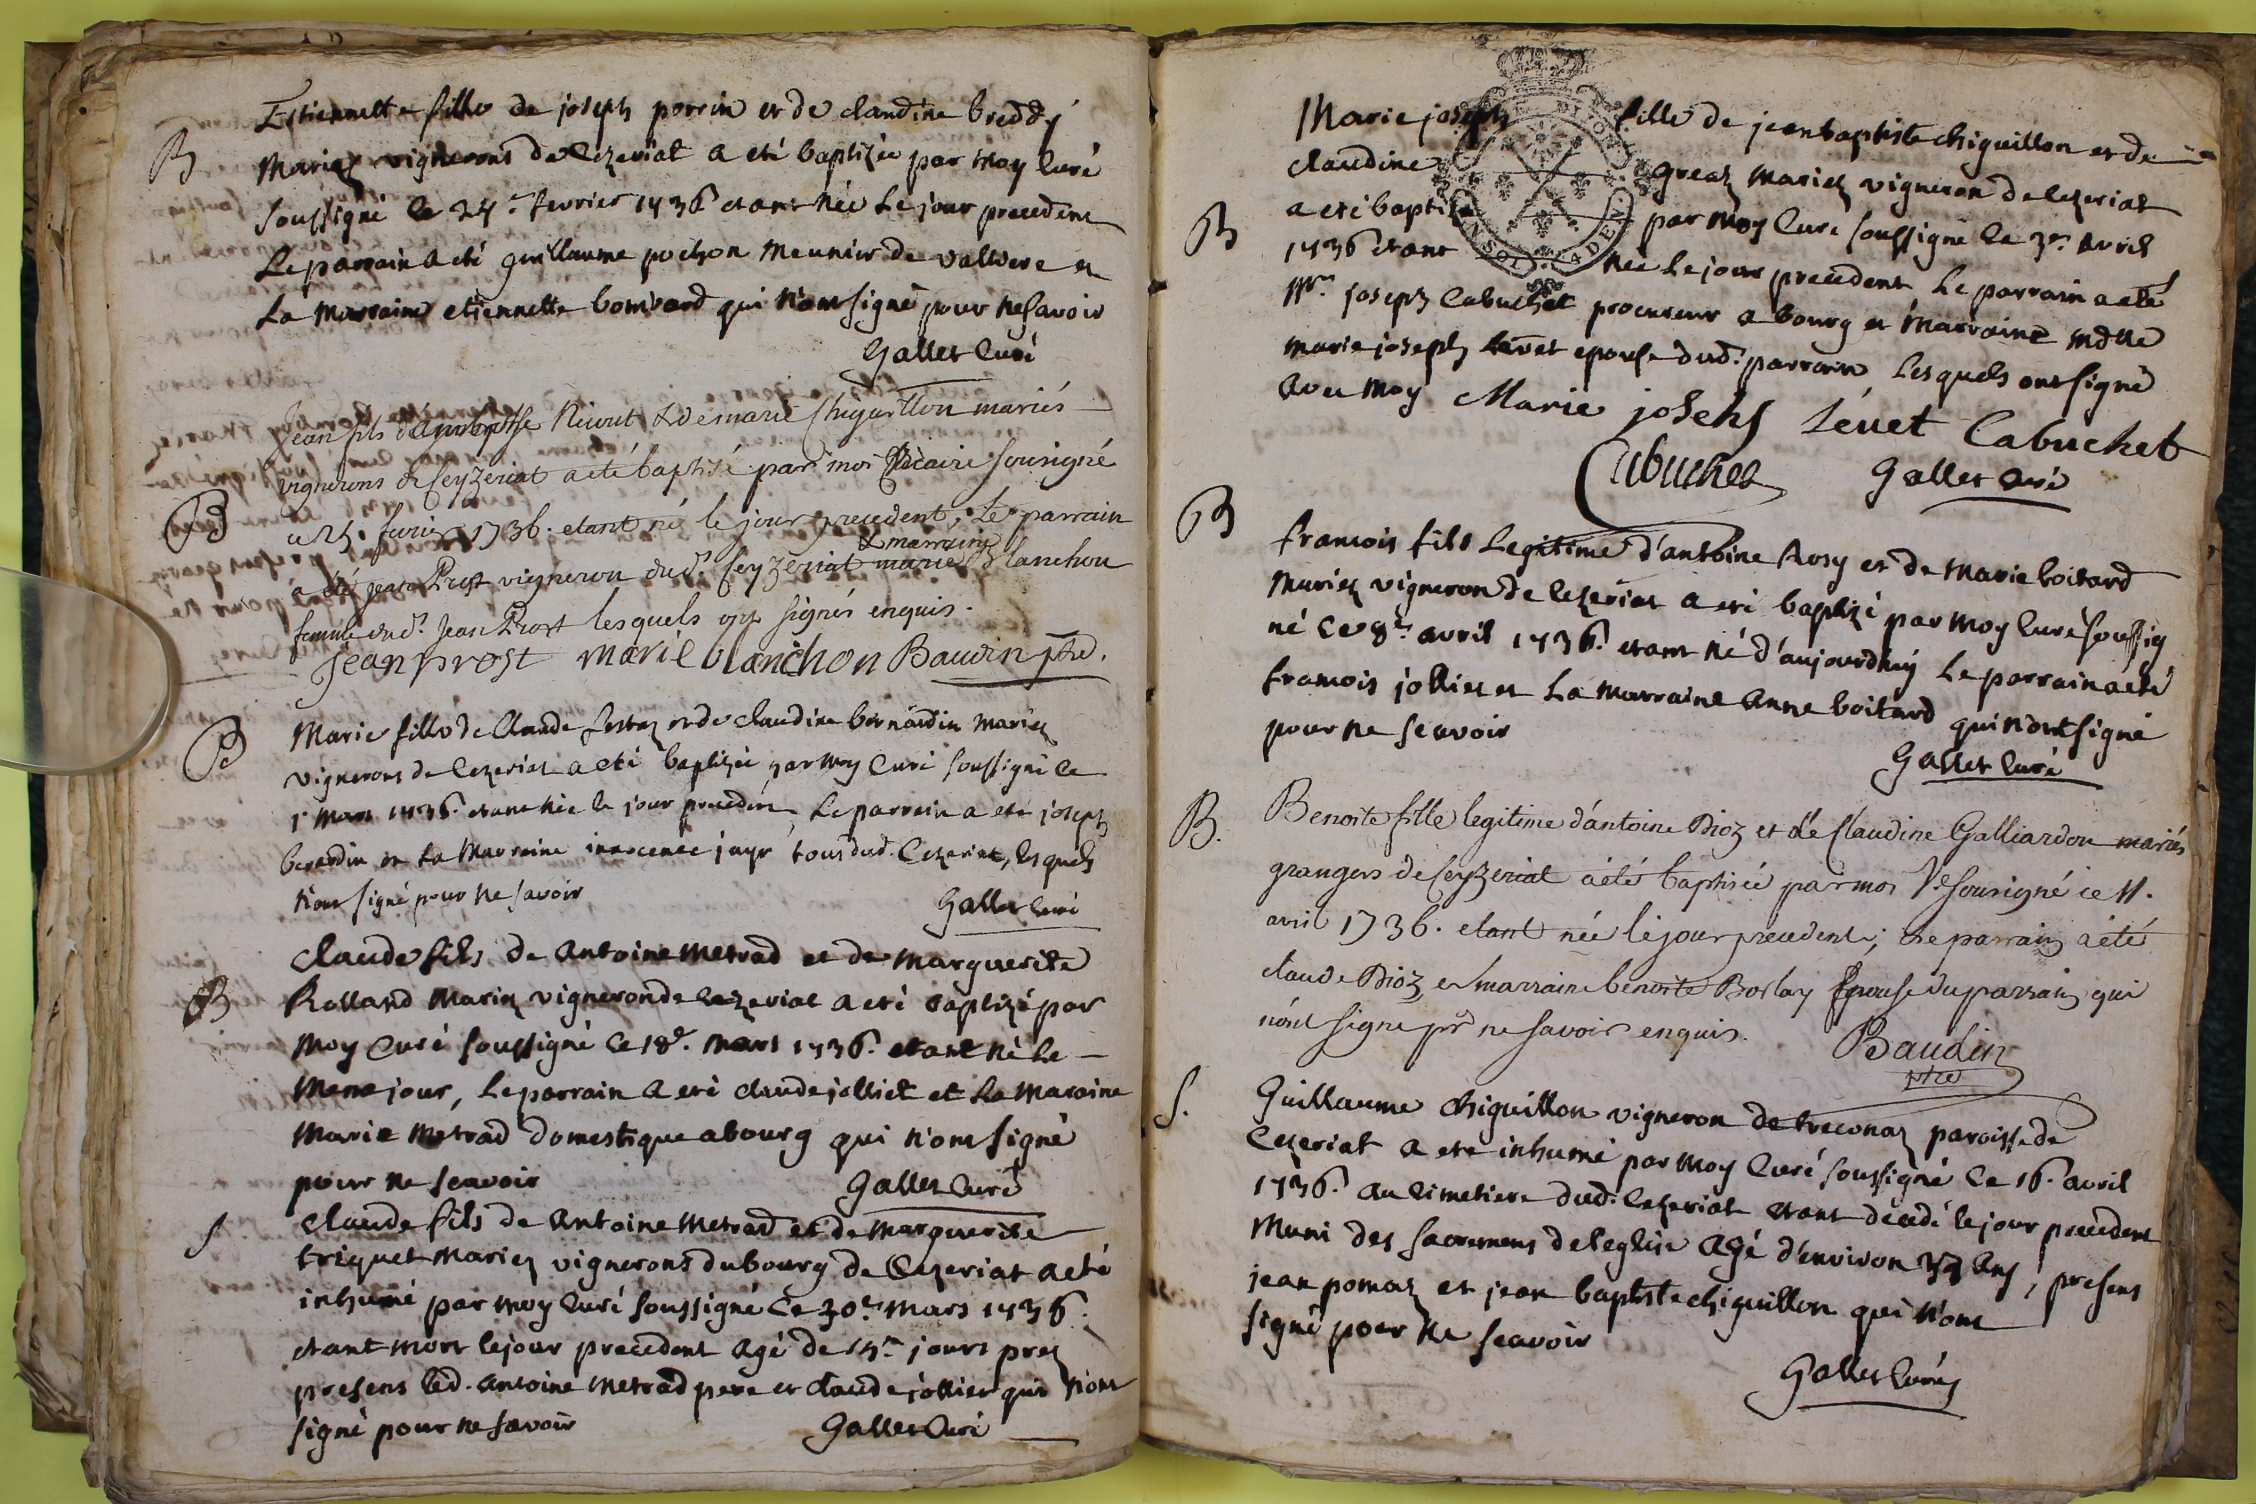 Estiennette fille de joseph perrin et de claudine breddy
B
Mariez vignerons de Cezeriat a eté baptizée par Moy Curé
soussigné le 24e fevrier 1736 etant née Le jour precedent
Le parrain a eté guillaume pochon Meunier de valliere et
La Marraine etiennette bombard qui n'ont signé pour ne savoir
Gallet Curé
Jean fils d'ambroise Nivout & de marie Chiguillon mariés
vignerons de Ceyzeriat a eté baptisé par moi Vicaire sousigné
B
ce 25. fevrier 1736. etant né le jour precedent, Le parrain
& marraine
a été Jean Prost vigneron dud. Ceyzeriat marie Blanchon
femme dud. Jean Prost lesquels ont signés enquis.
Jean prost marie blanchon Baudin ptre.
B
Marie fille de Claude et de claudine bernardin Mariez
vignerons de Cezeriat a eté baptizée par Moy Curé soussigné le
1r Mars 1736. etant née le jour precedent Le parrain a eté joseph
berardin et La Marraine innocence jayr tous dud. Cezeriat, lesquels
n'ont signé pour ne savoir
Gallet Curé
Claude fils de Antoine Metrad et de Marguerite
B
Rolland Mariez vigneron de Cezeriat a eté baptizé par
Moy Curé soussigné le 18e. Mars 1736. etant né Le
Meme jour, Le parrain a eté claude jolliet et La Maraine
Marie Metrad domestique a bourg qui n'ont signé
pour ne scavoir
Gallet Curé
S
Claude fils de Antoine Metrad et de Marguerite
triquet Mariez vignerons du bourg de Cezeriat a eté
inhumé par Moy Curé soussigné le 30e Mars 1736.
etant mort le jour precedent agé de 15e jours prez
presens led. Antoine Metrad pere et claude jollier qui n'ont
signé pour ne savoir
Gallet Curé
Marie joseph fille de jean baptiste chiguillon et de
claudine greaz Mariez vigneron de Cezeriat
B
a eté baptizée par Moy Curé soussigné le 3e. avril
1736 etant née Le jour precedent Le parrain a eté
Mr. joseph Cabuchet procureur a bourg et Marraine Mdlle
Marie joseph Levet epouse dud. parrain Lesquels ont signé
avec Moy
Marie josehs Lévet Cabuchet
Cabuchet
Gallet Curé
B
francois fils Legitime d'antoine Rosy et de Marie boitard
Mariez vigneron de Cezeriat a eté baptizé par Moy Curé soussig
né Ce 8e. avril 1736. etant né d'aujourdhuy Le parrain a eté
francois jolliet et La Marraine Anne boitard qui n'ont signé
pour ne scavoir
Gallet Curé
B.
Benoite fille legitime d'antoine Dioz et de Claudine Galliardon mariés
grangers de Ceyzeriat a été baptisée par moi Ve. sousigné ce 11.
avril 1736. etant née le jour precedent; Le parrain a été
claude Dioz, et marraine benoite Borlay Epouse du parrain, qui
n'ont signe pr ne savoir enquis.
Baudin
ptre
S.
Guillaume Chiguillon vigneron de treconaz paroisse de
Cezeriat a eté inhumé par Moy Curé soussigné Ce 16. avril
1736. au Cimetiere dud. Cezeriat etant decedé le jour precedent
Muni des sacremens de l'eglise agé d'environ ans, presens
jean pomaz et jean baptiste chiguillon qui n'ont
signé pour ne scavoir
Gallet Curé